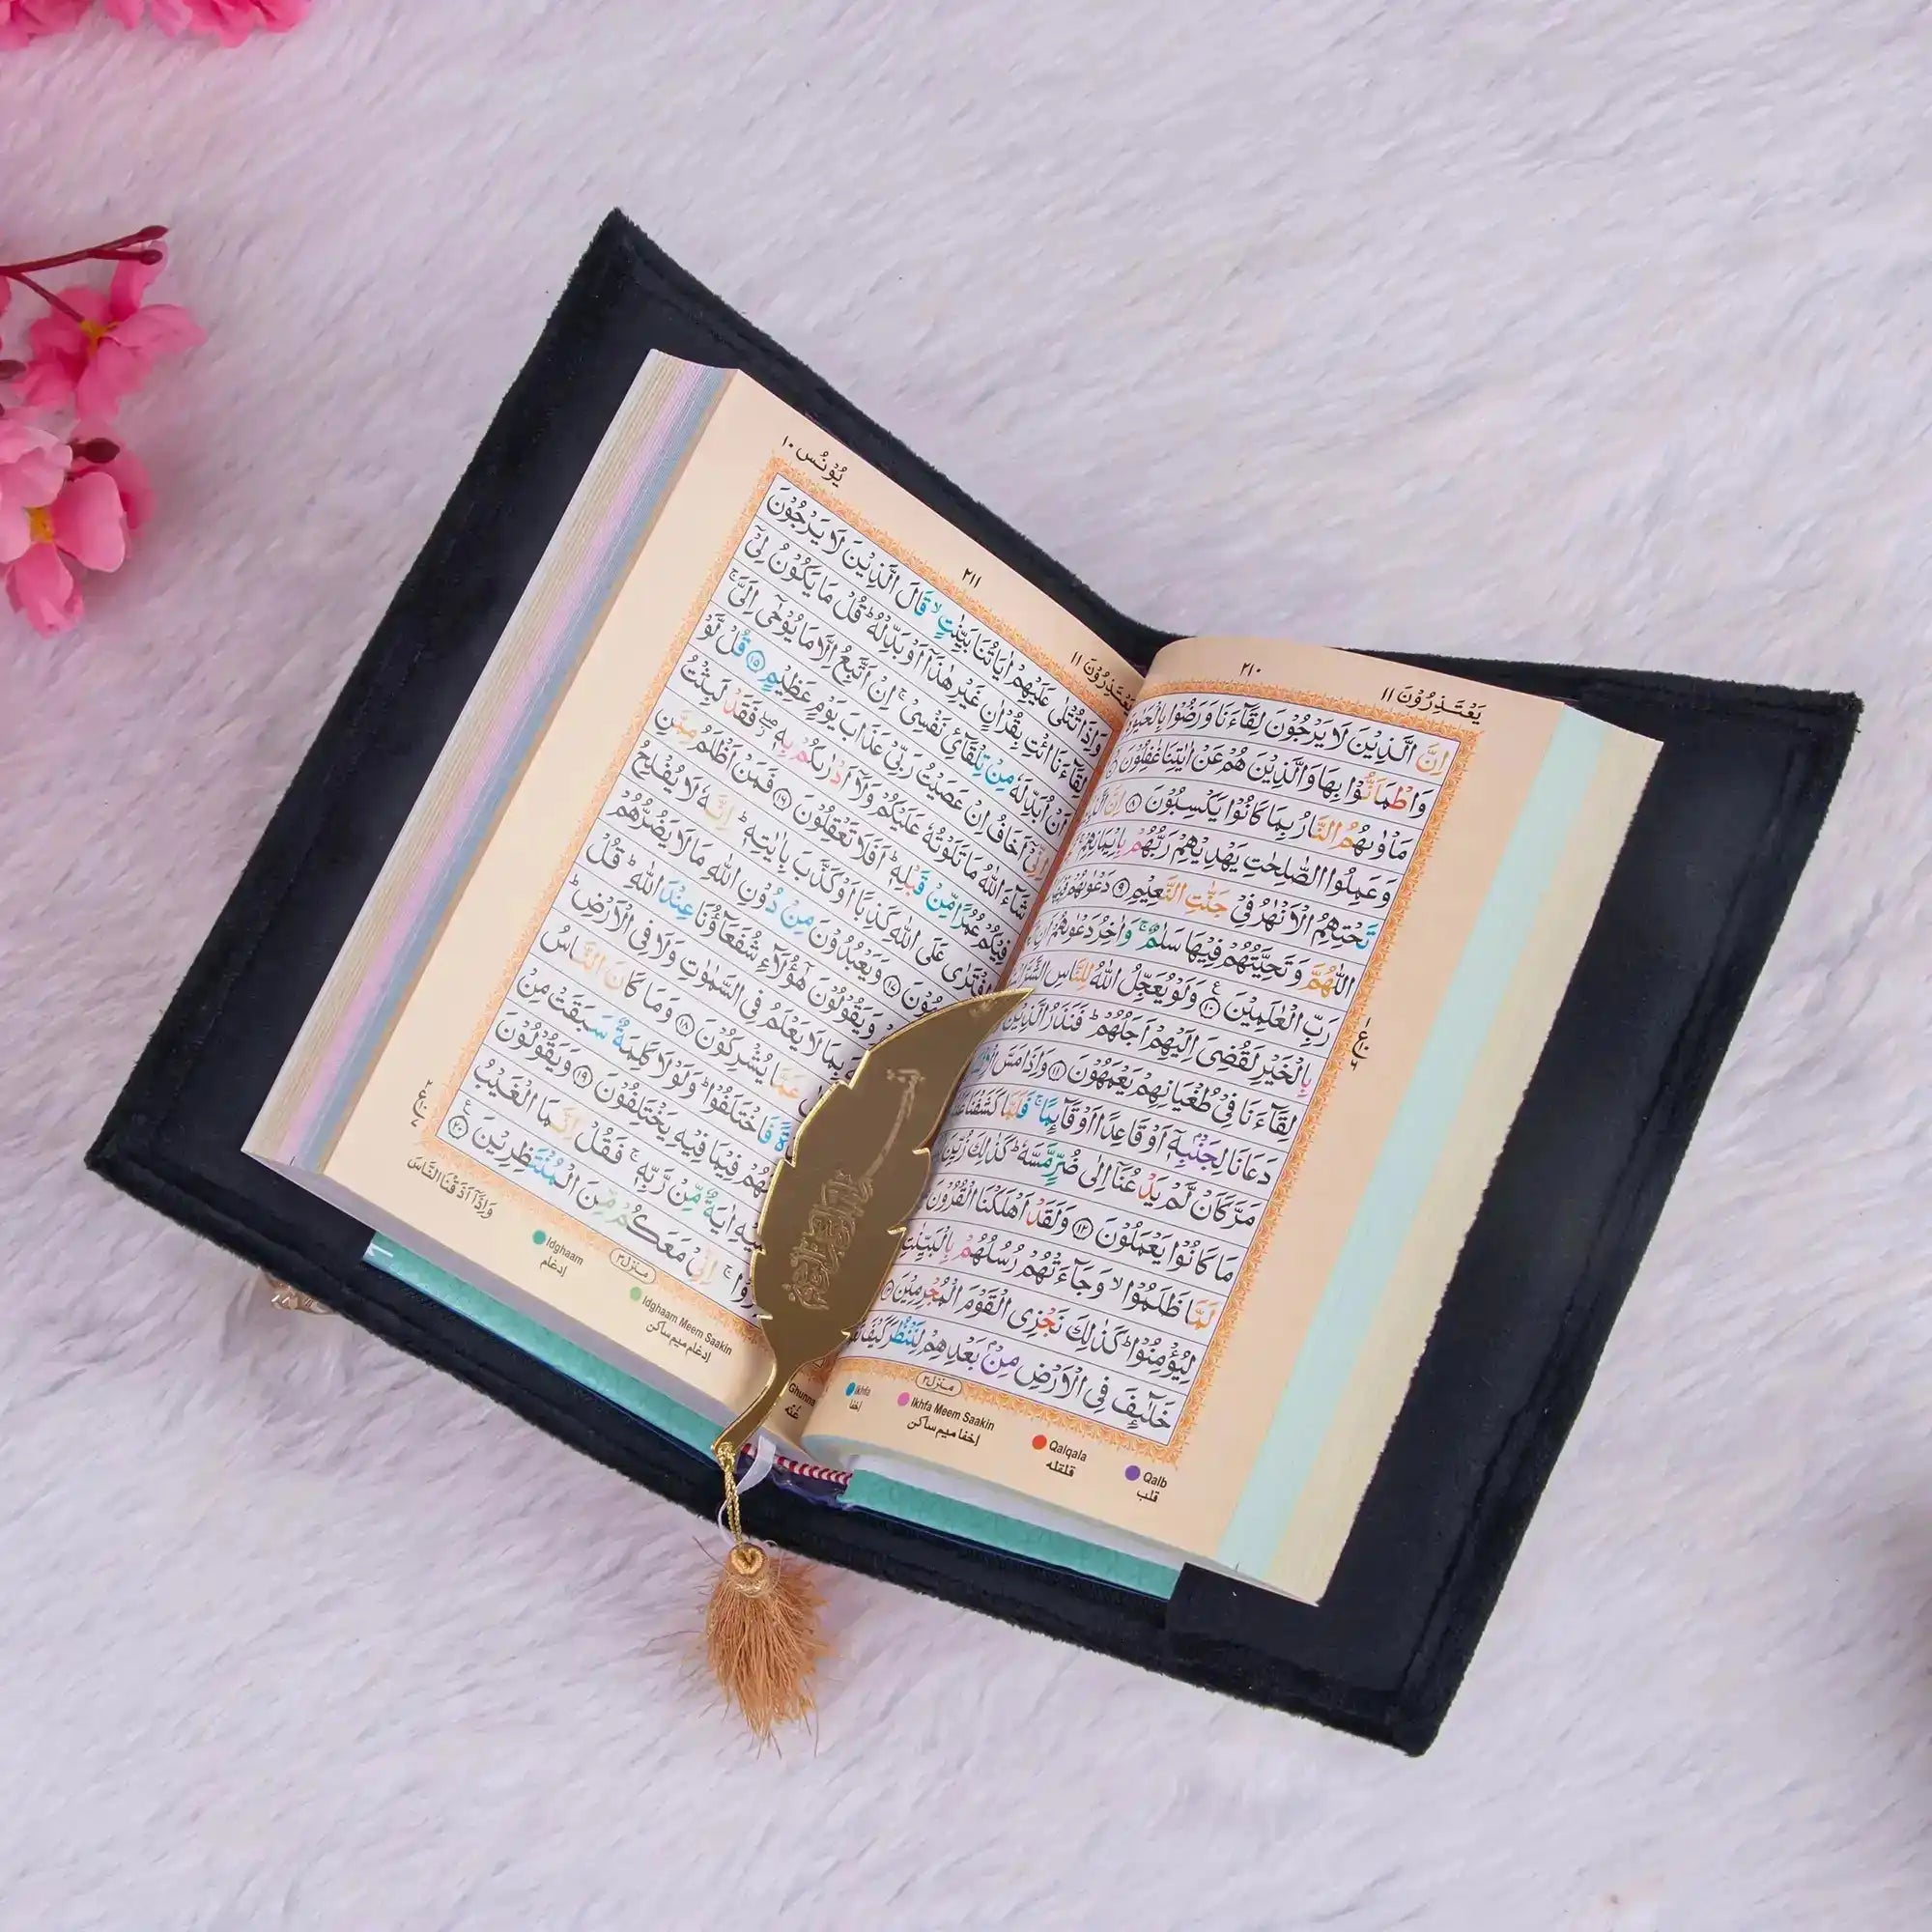 ٢١٠
يَعْتَذِرُوْنَ ١١
اِنَّ الَّذِيْنَ لَا يَرْجُوْنَ لِقَآءَنَا وَرَضُوْا
وَاطْمَاَنُّوْا بِهَا وَالَّذِيْنَ هُمْ عَنْ اٰيٰتِنَا غٰفِلُوْنَ
مَاْوٰىهُمُ النَّارُ بِمَا كَانُوْا يَكْسِبُوْنَ ۸ اِنَّ
وَعَمِلُوا الصّٰلِحٰتِ يَهْدِيْهِمْ رَبُّهُمْ بِاِيْمَانِهِمْ ۚ
تَحْتِهِمُ الْاَنْهٰرُ فِيْ جَنّٰتِ النَّعِيْمِ ۹ دَعْوٰىهُمْ
اللّٰهُمَّ وَتَحِيَّتُهُمْ فِيْهَا سَلٰمٌ ۚ وَاٰخِرُ دَعْوٰىهُمْ
رَبِّ الْعٰلَمِيْنَ ١٠ وَلَوْ يُعَجِّلُ اللّٰهُ لِلنَّاسِ
بِالْخَيْرِ لَقُضِيَ اِلَيْهِمْ اَجَلُهُمْ ؕ فَنَذَرُ الَّذِيْنَ
لِقَآءَنَا فِيْ طُغْيَانِهِمْ يَعْمَهُوْنَ ١١ وَاِذَا مَسَّ
دَعَانَا لِجَنْۢبِهٖۤ اَوْ قَاعِدًا اَوْ قَآئِمًا ۚ فَلَمَّا كَشَفْنَا
مَرَّ كَاَنْ لَّمْ يَدْعُنَاۤ اِلٰى ضُرٍّ مَّسَّهٗ ؕ كَذٰلِكَ زُيِّنَ
مَا كَانُوْا يَعْمَلُوْنَ ١٢ وَلَقَدْ اَهْلَكْنَا الْقُرُوْنَ
لَمَّا ظَلَمُوْا ۙ وَجَآءَتْهُمْ رُسُلُهُمْ بِالْبَيِّنٰتِ
لِيُؤْمِنُوْا ؕ كَذٰلِكَ نَجْزِي الْقَوْمَ الْمُجْرِمِيْنَ
خَلٰٓئِفَ فِي الْاَرْضِ مِنْۢ بَعْدِهِمْ لِنَنْظُرَ كَيْفَ
منزل٣
Ikhfa
إخفا
Ikhfa Meem Saakin
إخفا ميم ساكن
Qalqala
قلقله
Qalb
قلب
يُوْنُس ١٠
٢١١
يَعْتَذِرُوْنَ ١١
وَاِذَا تُتْلٰى عَلَيْهِمْ اٰيَاتُنَا بَيِّنٰتٍ ۙ قَالَ الَّذِيْنَ لَا يَرْجُوْنَ
لِقَآءَنَا ائْتِ بِقُرْاٰنٍ غَيْرِ هٰذَاۤ اَوْ بَدِّلْهُ ؕ قُلْ مَا يَكُوْنُ لِيْۤ
اَنْ اُبَدِّلَهٗ مِنْ تِلْقَآئِ نَفْسِيْ ۚ اِنْ اَتَّبِعُ اِلَّا مَا يُوْحٰۤى اِلَيَّ ۚ
اِنِّيْۤ اَخَافُ اِنْ عَصَيْتُ رَبِّيْ عَذَابَ يَوْمٍ عَظِيْمٍ ١٥ قُلْ لَّوْ
شَآءَ اللّٰهُ مَا تَلَوْتُهٗ عَلَيْكُمْ وَلَاۤ اَدْرٰىكُمْ بِهٖ ۖ فَقَدْ لَبِثْتُ
فِيْكُمْ عُمُرًا مِّنْ قَبْلِهٖ ؕ اَفَلَا تَعْقِلُوْنَ ١٦ فَمَنْ اَظْلَمُ مِمَّنِ
افْتَرٰى عَلَى اللّٰهِ كَذِبًا اَوْ كَذَّبَ بِاٰيٰتِهٖ ؕ اِنَّهٗ لَا يُفْلِحُ
١٧ وَيَعْبُدُوْنَ مِنْ دُوْنِ اللّٰهِ مَا لَا يَضُرُّهُمْ
وَيَقُوْلُوْنَ هٰۤؤُلَآءِ شُفَعَآؤُنَا عِنْدَ اللّٰهِ ؕ قُلْ
بِمَا لَا يَعْلَمُ فِي السَّمٰوٰتِ وَلَا فِي الْاَرْضِ ؕ
عَمَّا يُشْرِكُوْنَ ١٨ وَمَا كَانَ النَّاسُ
فَاخْتَلَفُوْا ؕ وَلَوْلَا كَلِمَةٌ سَبَقَتْ مِنْ
فِيْمَا فِيْهِ يَخْتَلِفُوْنَ ١٩ وَيَقُوْلُوْنَ
اٰيَةٌ مِّنْ رَّبِّهٖ ۚ فَقُلْ اِنَّمَا الْغَيْبُ
اِنِّيْ مَعَكُمْ مِّنَ الْمُنْتَظِرِيْنَ ٢٠
منزل٣
وَاِذَاۤ اَذَقْنَا النَّاسَ
Idghaam
إدغام
Idghaam Meem Saakin
إدغام ميم ساكن
Ghunna
غنه